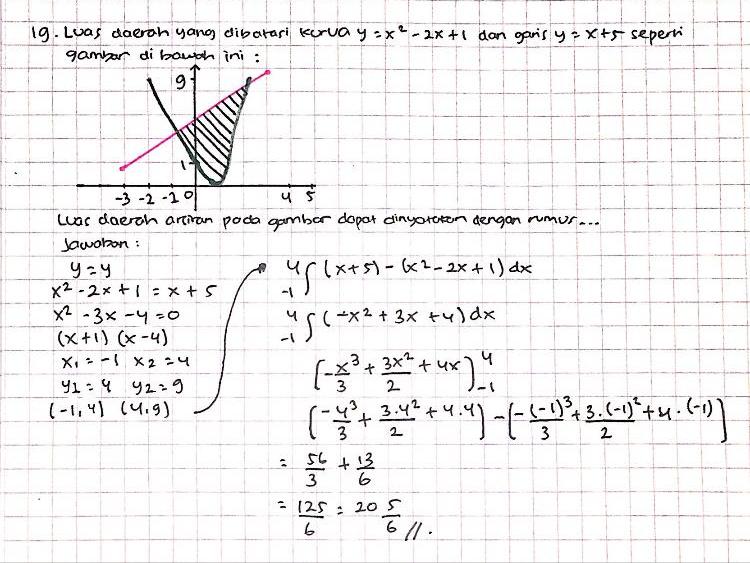 19. Luas daerah yang dibatasi kurva y = x² - 2x + 1 dan garis y = x + 5 seperti
gambar di bawah ini :
9
1
-3 -2 -1 0 4 5
Luas daerah arsiran pada gambar dapat dinyatakan dengan rumus...
Jawaban :
y = y
x² - 2x + 1 = x + 5
x² - 3x - 4 = 0
(x+1) (x-4)
x₁ = -1 x₂ = 4
y1 = 4 y2 = 9
(-1,4) (4,9)
4 ∫ -1 (x+5) - (x² - 2x + 1) dx
4 ∫ -1 (-x2 + 3x + 4) dx
[-x³/3 + 3x²/2 + 4x] 4 -1
[-4³/3 + 3.4²/2 + 4.4] - [-(-1)³/3 + 3.(-1)²/2 + 4.(-1)]
= 56/3 + 13/6
= 125/6 = 20 5/6 //.